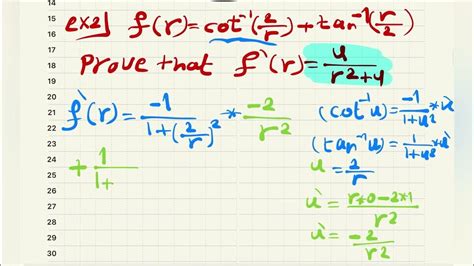 14
15
16 ex2] f(r)=cot⁻¹(2/r)+tan⁻¹(r/2)
17
18 Prove that f`(r)= 4/(r²+4)
19
20
21 f`(r)= -1/(1+(2/r)²) * -2/r²
22 (cot⁻¹u)= -1/(1+u²) * u`
23
24 (tan⁻¹u)= 1/(1+u²) * u`
25 + 1/(1+
26 u = 2/r
27
28 u` = (r*0-2*1)/r²
29
30 u` = -2/r²